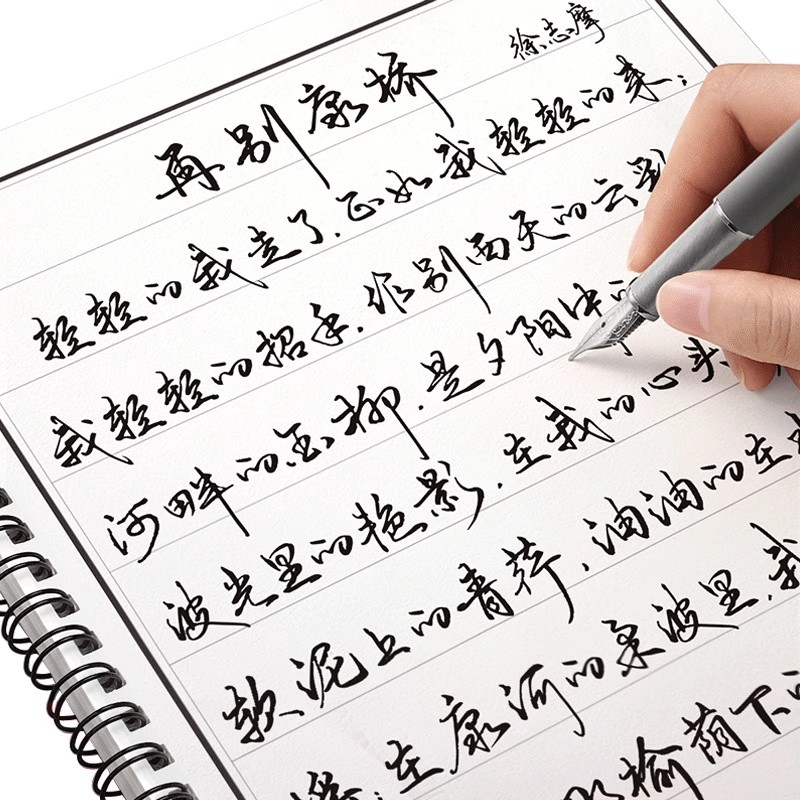 再别康桥
徐志摩
轻轻的我走了,正如我轻轻的来;
我轻轻的招手,作别西天的云彩
河畔的金柳,是夕阳中
波光里的艳影,在我的心头
软泥上的青荇,油油的在
在康河的柔波里,我
榆荫下